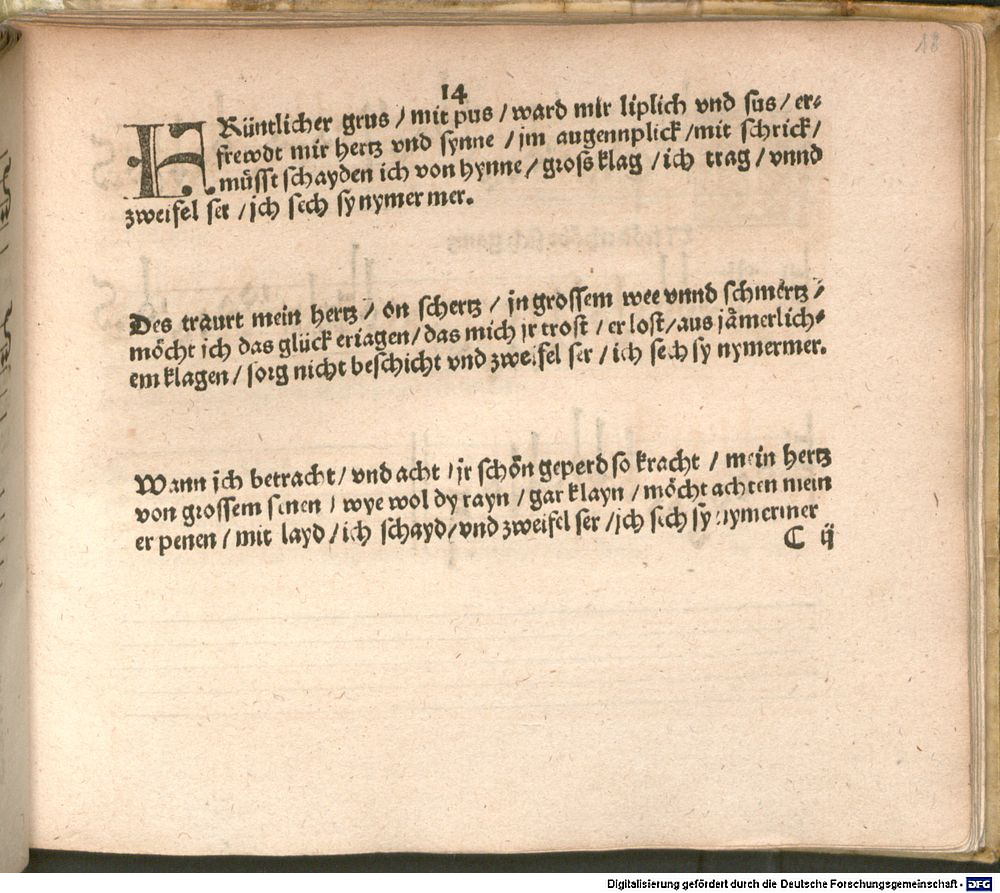 18
14
FRüntlicher grus / mit pus / ward mir liplich vnd sus / er⸗
frewdt mir hertz vnd synne / jm augennplick / mit schrick /
müsst schayden ich von hynne / gross klag / ich trag / vnnd
zweifel ser / jch sech sy nymer mer.
Des traurt mein hertz / on schertz / jn grossem wee vnnd schmertz /
möcht ich das glück eriagen / das mich jr trost / er lost / aus jämerlich⸗
em klagen / sorg nicht beschicht vnd zweifel ser / ich sech sy nymermer.
Wann ich betracht / vnd acht / jr schön geperd so kracht / mein hertz
von grossem senen / wye wol dy rayn / gar klayn / möcht achten mein
er penen / mit layd / ich schayd / vnd zweifel ser / jch sech sy nymermer
C ij
Digitalisierung gefördert durch die Deutsche Forschungsgemeinschaft - DFG